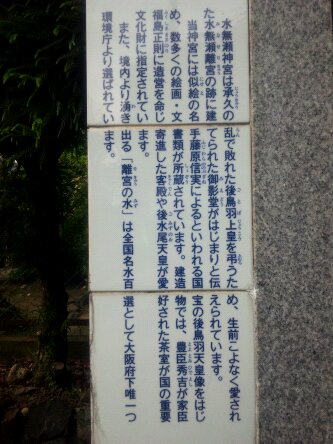 水無瀬神宮は承久の乱で敗れた後鳥羽上皇を弔うため、生前こよなく愛され
た水無瀬離宮の跡に建てられた御影堂がはじまりと伝えられています。
当神宮には似絵の名手藤原信実によるといわれる国宝の後鳥羽天皇像をはじ
め、数多くの絵画・文書類が所蔵されています。建造物では、豊臣秀吉が家臣
福島正則に造営を命じ寄進した客殿や後水尾天皇が愛好された茶室が国の重要
文化財に指定されています。
また、境内より湧き出る「離宮の水」は全国名水百選として大阪府下唯一つ
環境庁より選ばれています。